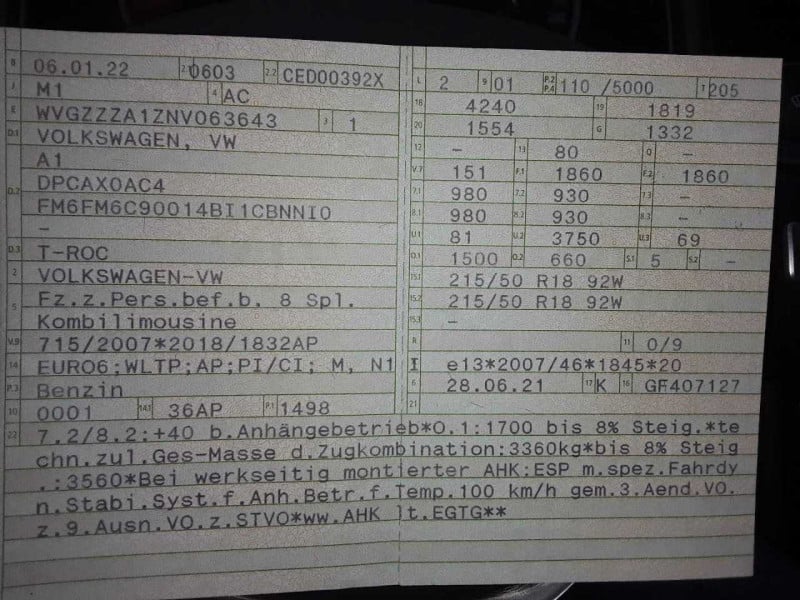 B 06.01.22 2.1 0603 2.2 CED00392X
J M1 4 AC
E WVGZZZA1ZNV063643 3 1
D.1 VOLKSWAGEN, VW
A1
D.2 DPCAX0AC4
FM6FM6C90014BI1CBNNI0
-
D.3 T-ROC
2 VOLKSWAGEN-VW
5 Fz.z.Pers.bef.b. 8 Spl.
Kombilimousine
V.9 715/2007*2018/1832AP
14 EURO6;WLTP;AP;PI/CI; M, N1 I
P.3 Benzin
10 0001 14.1 36AP P.1 1498
L 2 9 01 P.2 P.4 110 /5000 T 205
18 4240 19 1819
20 1554 G 1332
12 - 13 80 Q -
V.7 151 F.1 1860 F.2 1860
7.1 980 7.2 930 7.3 -
8.1 980 8.2 930 8.3 -
U.1 81 U.2 3750 U.3 69
O.1 1500 O.2 660 S.1 5 S.2 -
15.1 215/50 R18 92W
15.2 215/50 R18 92W
15.3 -
R 11 0/9
e13*2007/46*1845*20
6 28.06.21 17 K 16 GF407127
21
22 7.2/8.2:+40 b.Anhängebetrieb*O.1:1700 bis 8% Steig.*te
chn.zul.Ges-Masse d.Zugkombination:3360kg*bis 8% Steig
.:3560*Bei werkseitig montierter AHK:ESP m.spez.Fahrdy
n.Stabi.Syst.f.Anh.Betr.f.Temp.100 km/h gem.3.Aend.VO.
z.9.Ausn.VO.z.STVO*ww.AHK lt.EGTG**